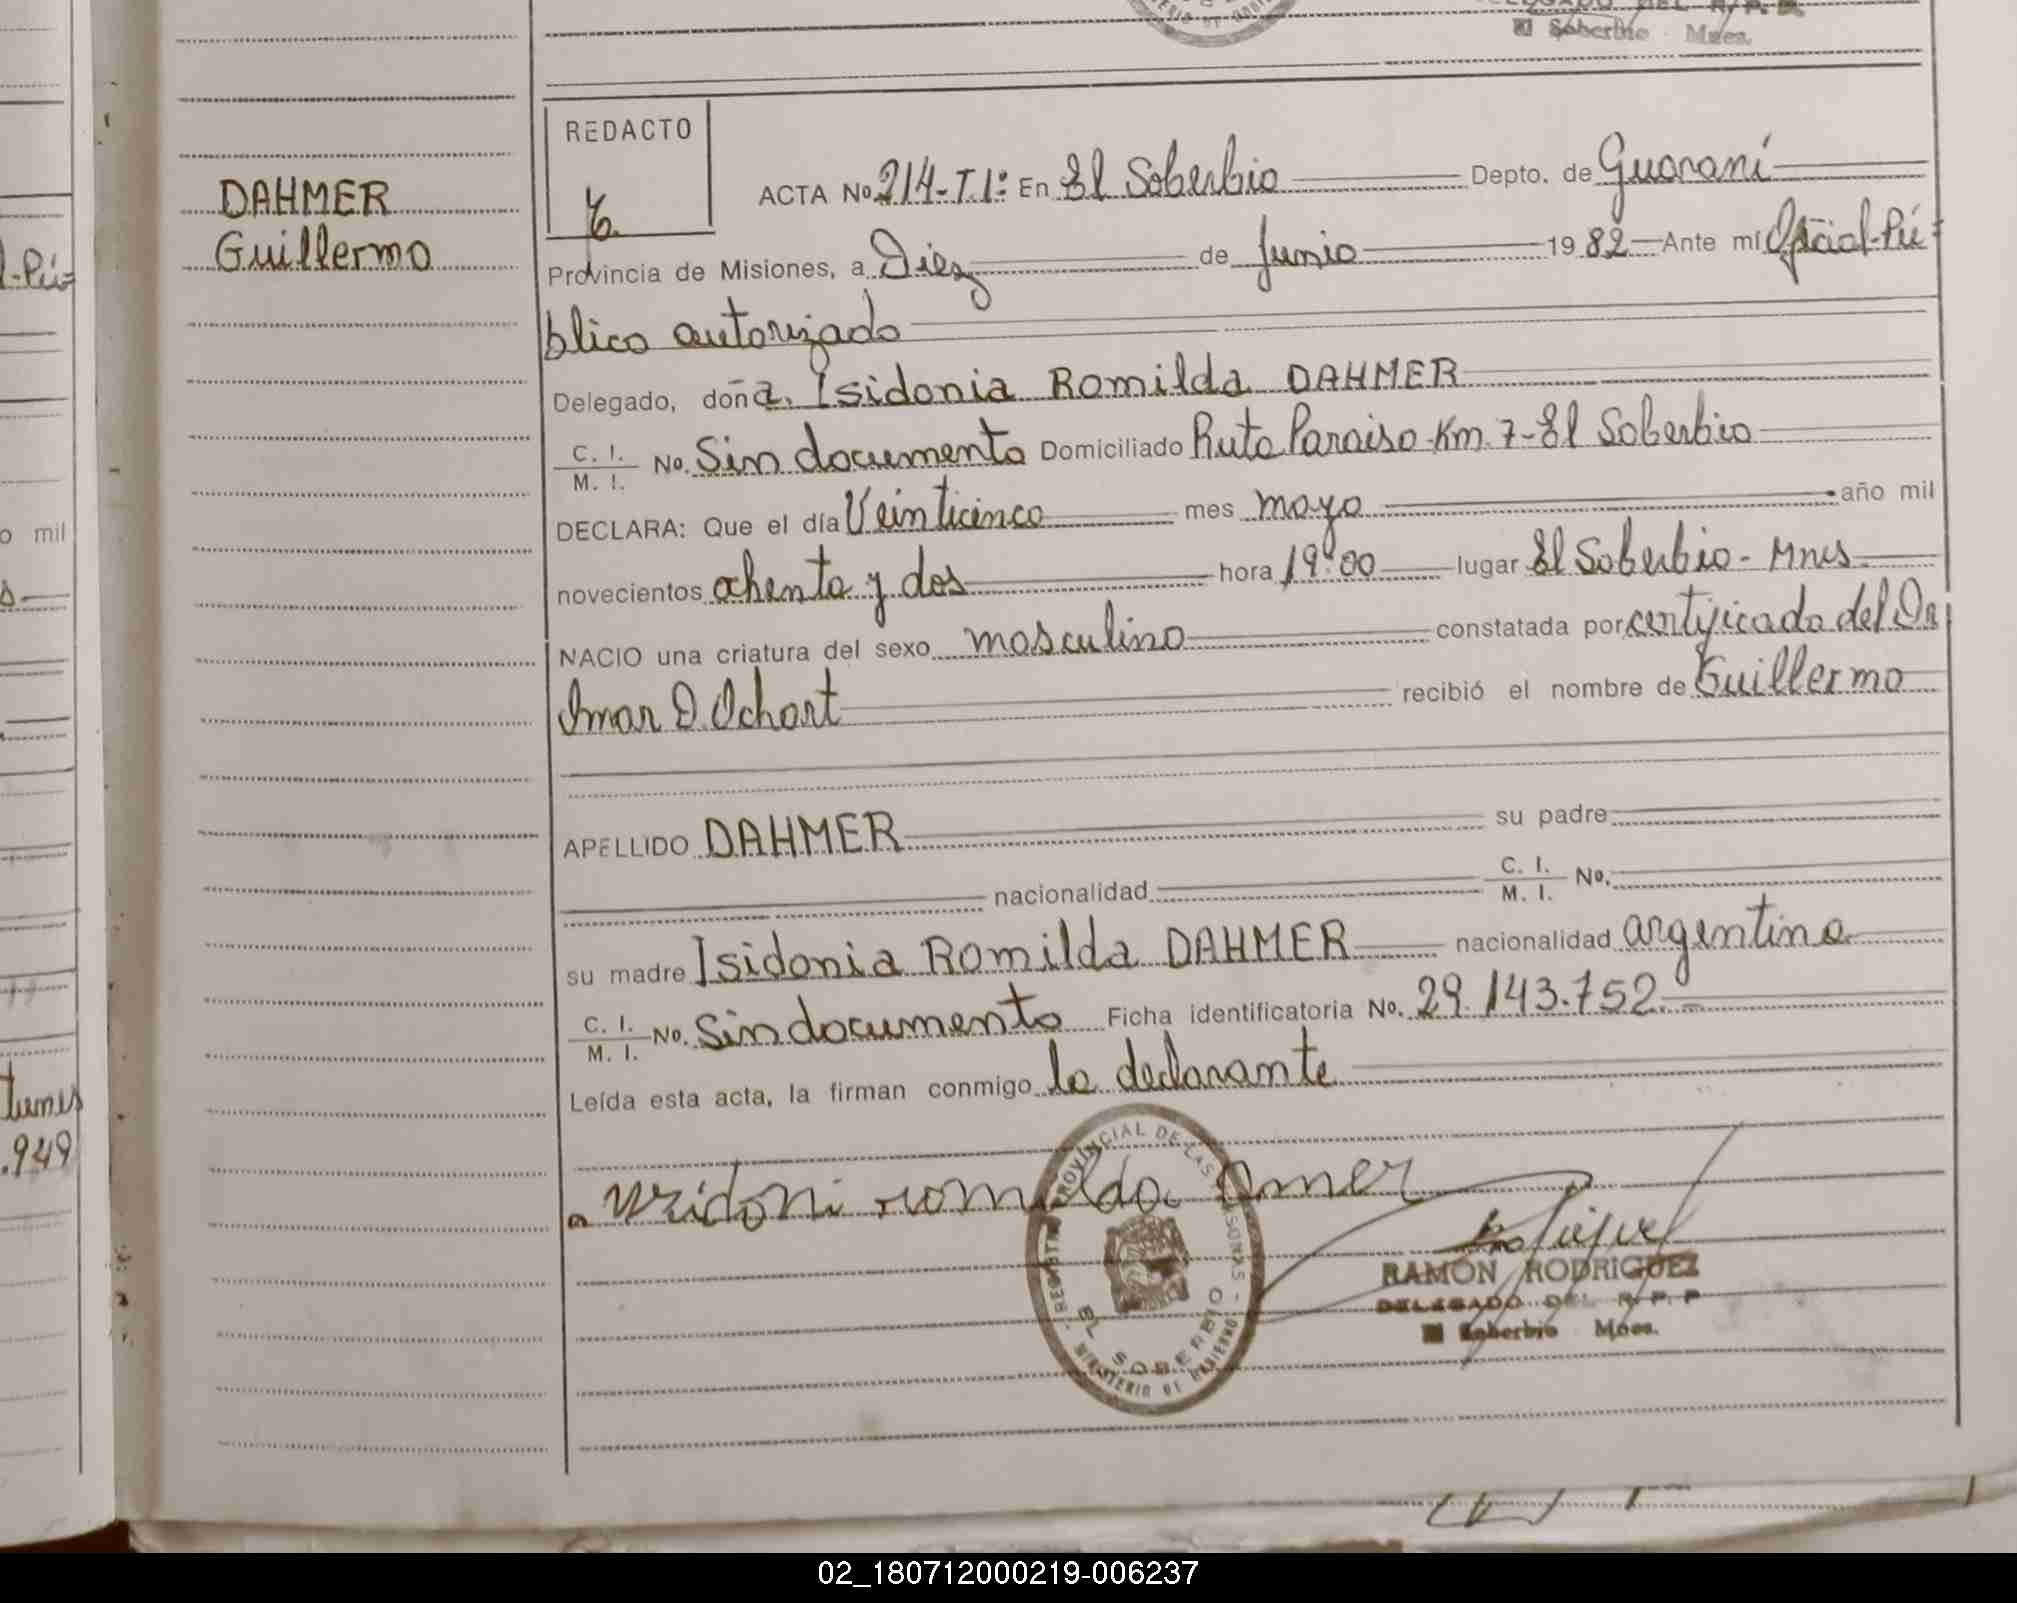 DELEGADO DEL R. P. P.
El Soberbio Mnes.
REDACTO
DAHMER
Guillermo
ACTA No 214-T.1º En El Soberbio Depto. de Guaraní
Provincia de Misiones, a Diez de Junio 1982 Ante mí Oficial Pú=
blico autorizado
Delegado, doña. Isidonia Romilda DAHMER
C. I.
M. I. No. Sin documento Domiciliado Ruta Paraiso-Km. 7-El Soberbio
DECLARA: Que el día Veinticinco mes mayo año mil
novecientos ochenta y dos hora 19:00 lugar El Soberbio-Mnes.
NACIO una criatura del sexo masculino constatada por certificado del Dr
Omar O. Ochart recibió el nombre de Guillermo
APELLIDO DAHMER su padre
nacionalidad C. I.
M. I. No.
su madre Isidonia Romilda DAHMER nacionalidad argentina
C. I.
M. I. No. Sin documento Ficha identificatoria No. 29.143.752.
Leída esta acta, la firman conmigo la declarante
REGISTRO PROVINCIAL DE LAS PERSONAS
EL SOBERBIO
MINISTERIO DE GOBIERNO
RAMÓN RODRIGUEZ
DELEGADO DEL R. P. P
El Soberbio Mnes.
o mil
.949
02_180712000219-006237